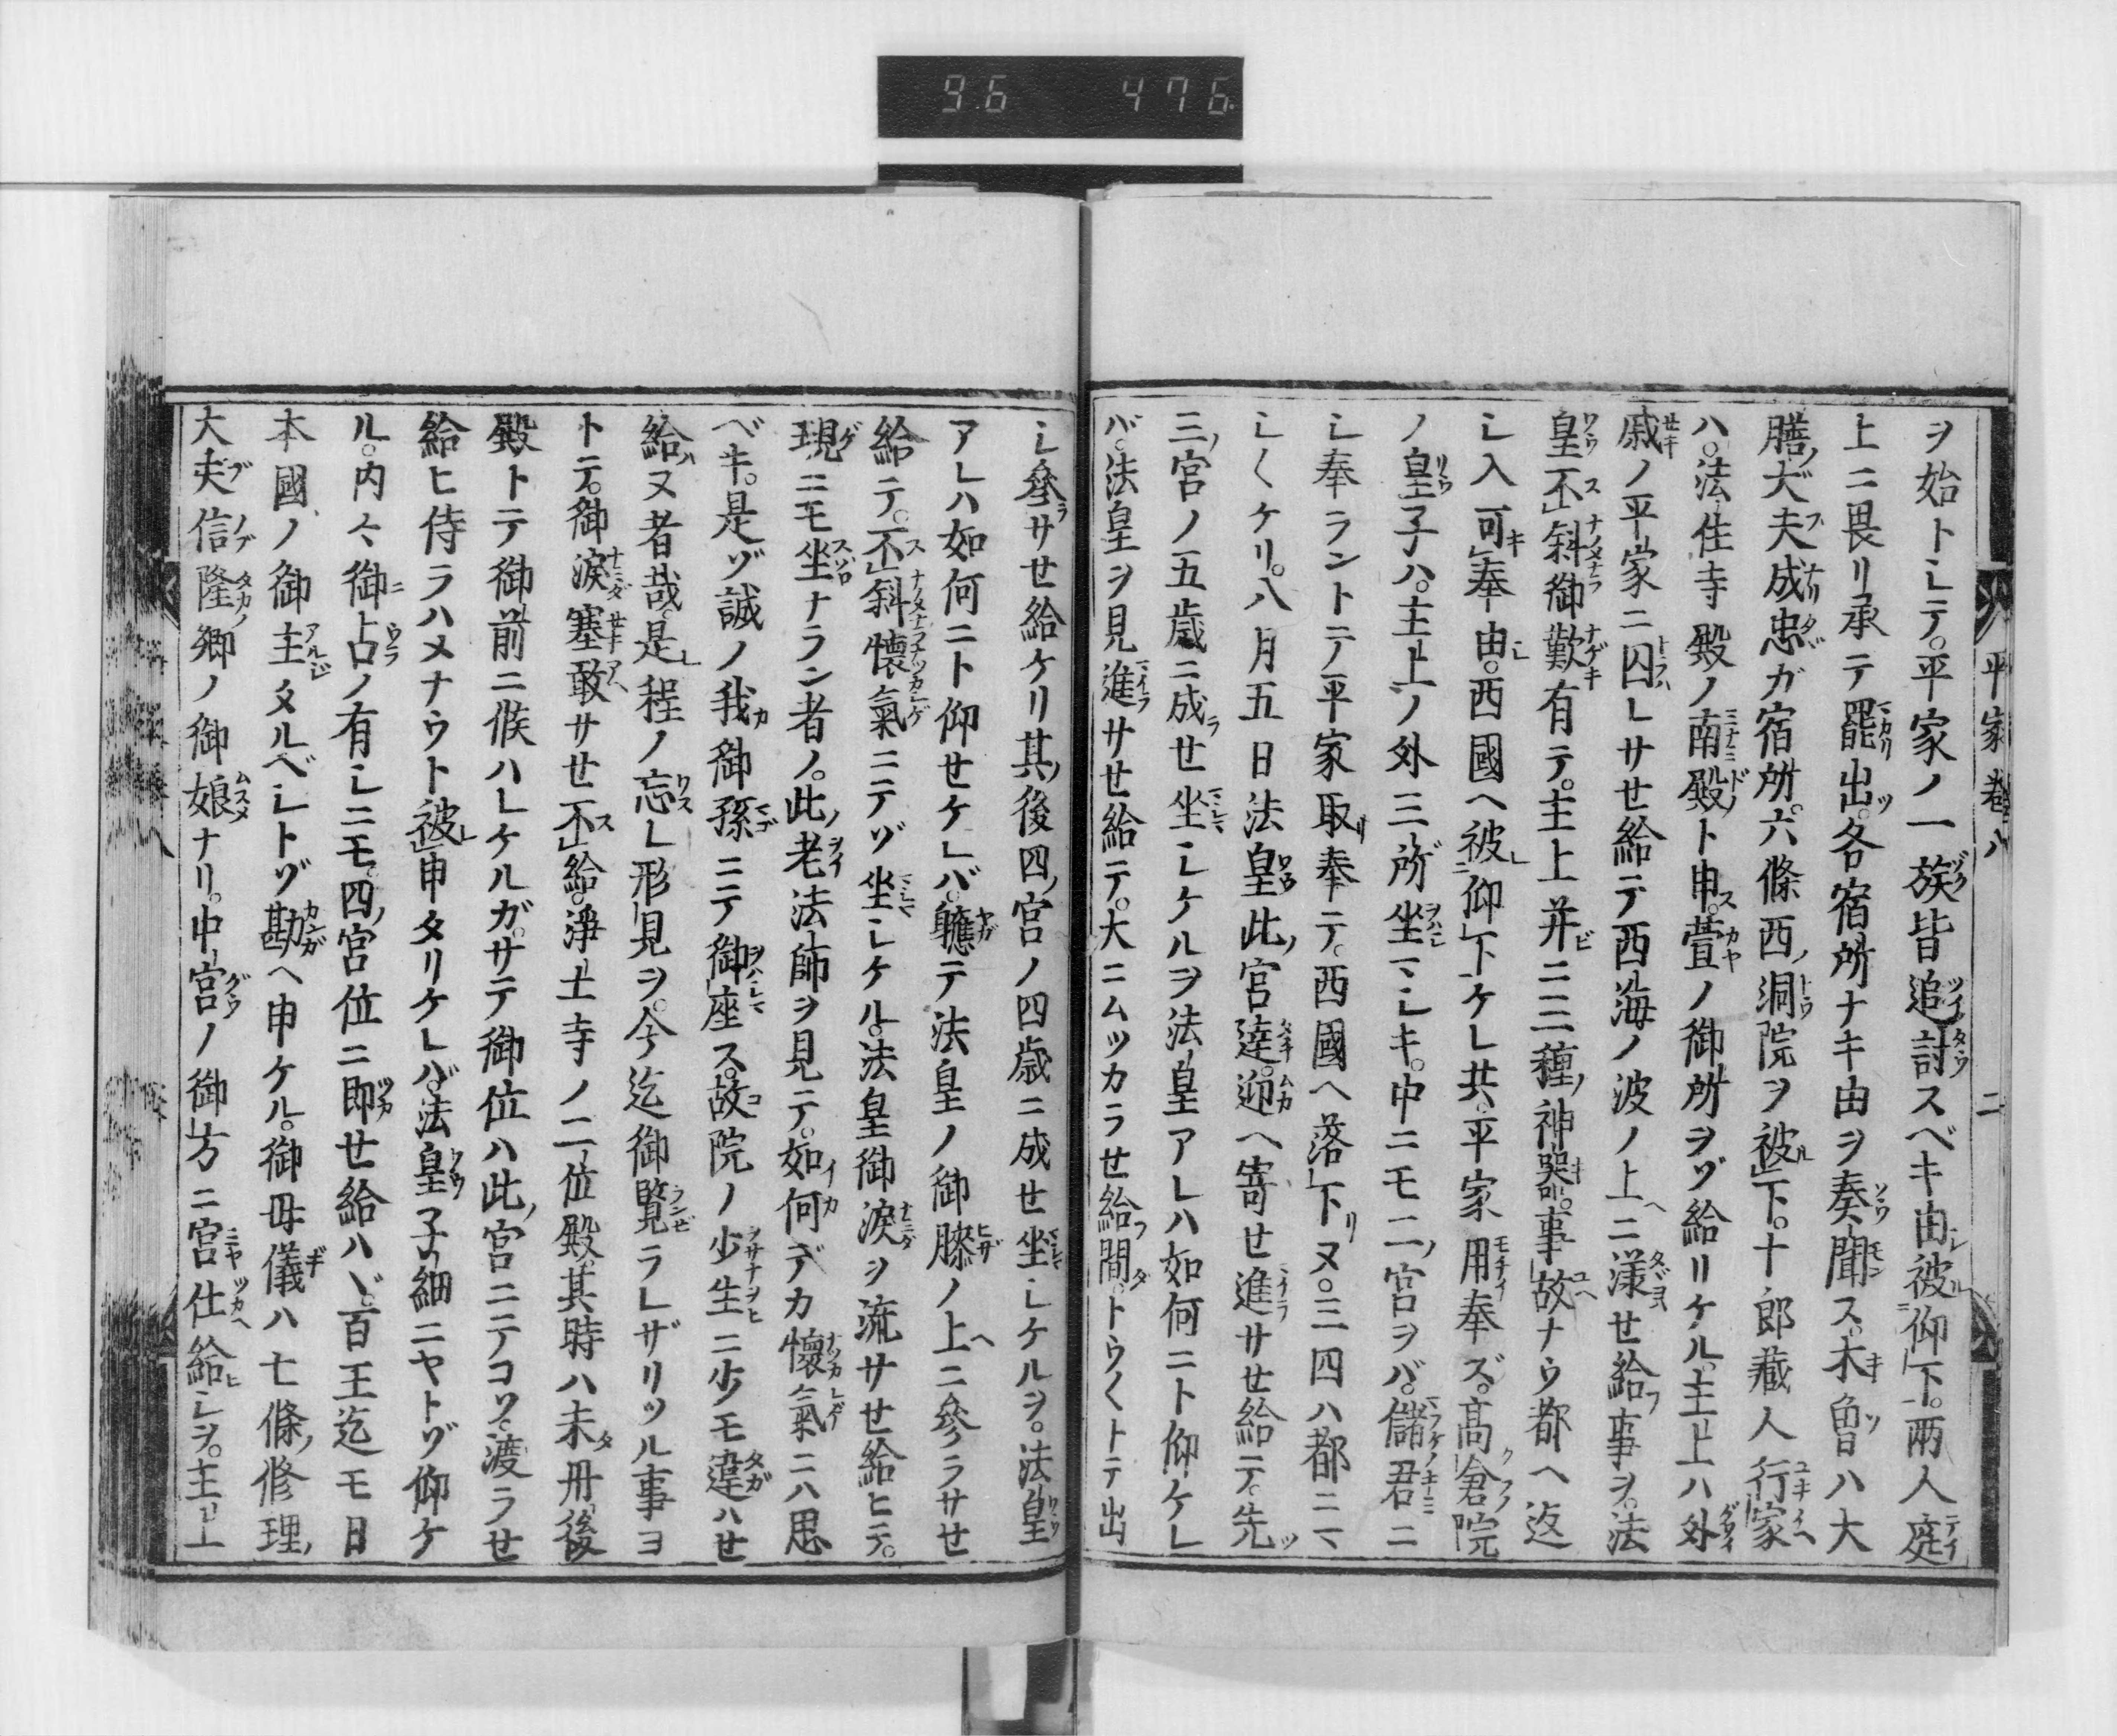 96 476
平家巻八 二
ヲ始トシテ。平家ノ一族皆追討スベキ由被仰下。兩人庭
上ニ畏リ承テ罷出。各宿所ナキ由ヲ奏聞ス。木曽ハ大
膳ノ大夫成忠ガ宿所。六條西ノ洞院ヲ被下。十郎藏人行家
ハ。法住寺殿ノ南殿ト申。萱ノ御所ヲゾ給リケル。主上ハ外
戚ノ平家ニ囚レサせ給テ西海ノ波ノ上ニ漾せ給フ事ヲ。法
皇不斜御歎有テ。主上并ニ三種ノ神器。事故ナウ都ヘ返
シ入可奉由。西國ヘ被仰下ケレ共。平家用奉ズ。高倉院
ノ皇子ハ。主上ノ外三所坐マシキ。中ニモ二ノ宮ヲバ。儲君ニ
シ奉ラントテ平家取奉テ。西國ヘ落下リヌ。三四ハ都ニマ
シ〱ケリ。八月五日法皇此ノ宮達。迎ヘ寄せ進サせ給テ。先
三ノ宮ノ五歳ニ成せ坐シケルヲ法皇アレハ如何ニト仰ケレ
バ。法皇ヲ見進サせ給テ。大ニムツカラせ給フ間。トウ〱トテ出
シ參サせ給ケリ其ノ後四ノ宮ノ四歳ニ成せ坐シケルヲ。法皇
アレハ如何ニト仰せケレバ。軈テ法皇ノ御膝ノ上ニ參ラサせ
給テ。不斜懷氣ニテゾ坐シケル。法皇御淚ヲ流サせ給ヒテ。
現ニモ坐ナラン者ノ。此ノ老法師ヲ見テ。如何デカ懷氣ニハ思
ベキ。是ゾ誠ノ我御孫ニテ御座ス。故院ノ少生ニ少モ違ハせ
給ハヌ者哉。是程ノ忘レ形見ヲ。今迄御覽ラレザリツル事ヨ
トテ。御淚塞敢サせ不給。淨土寺ノ二位殿。其時ハ未丹後
殿トテ御前ニ候ハレケルガ。サテ御位ハ此ノ宮ニテコソ渡ラせ
給ヒ侍ラハメナウト被申タリケレバ。法皇子細ニヤトゾ仰ケ
ル。内々御占ノ有シニモ。四ノ宮位ニ即せ給ハヾ。百王迄モ日
本國ノ御主タルベシトゾ勘ヘ申ケル。御母儀ハ七條ノ修理ノ
大夫信隆卿ノ御娘ナリ。中宮ノ御方ニ宮仕給ヒシヲ。主上